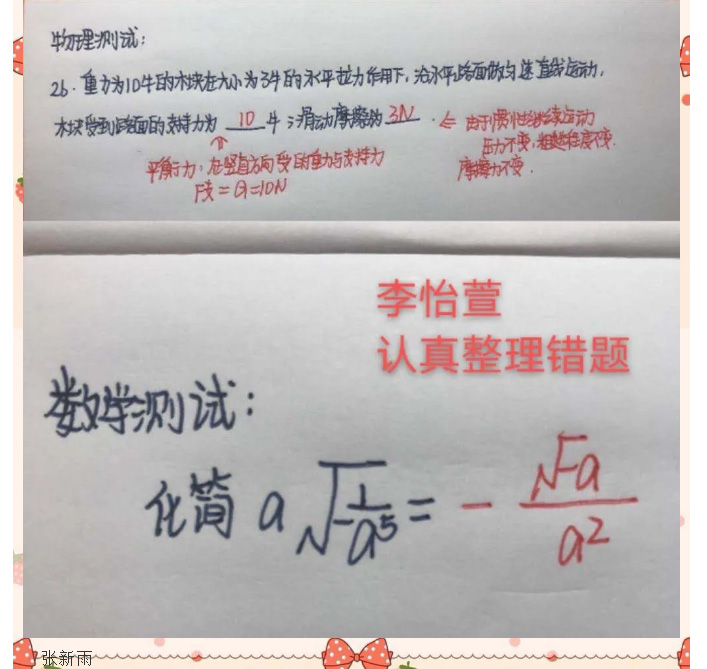 物理测试：
26. 重力为10牛的木块在大小为3牛的水平拉力作用下，沿水平路面做匀速直线运动，
木块受到路面的支持力为 10 牛；滑动摩擦为 3N . ⇐ 由于惯性继续运动
压力不变，粗糙程度不变.
摩擦力不变.
⇑
平衡力，在竖直方向受的重力与支持力
F支=G=10N
李怡萱
认真整理错题
数学测试：
化简 a√(-1/a⁵) = - √-a / a²
张新雨